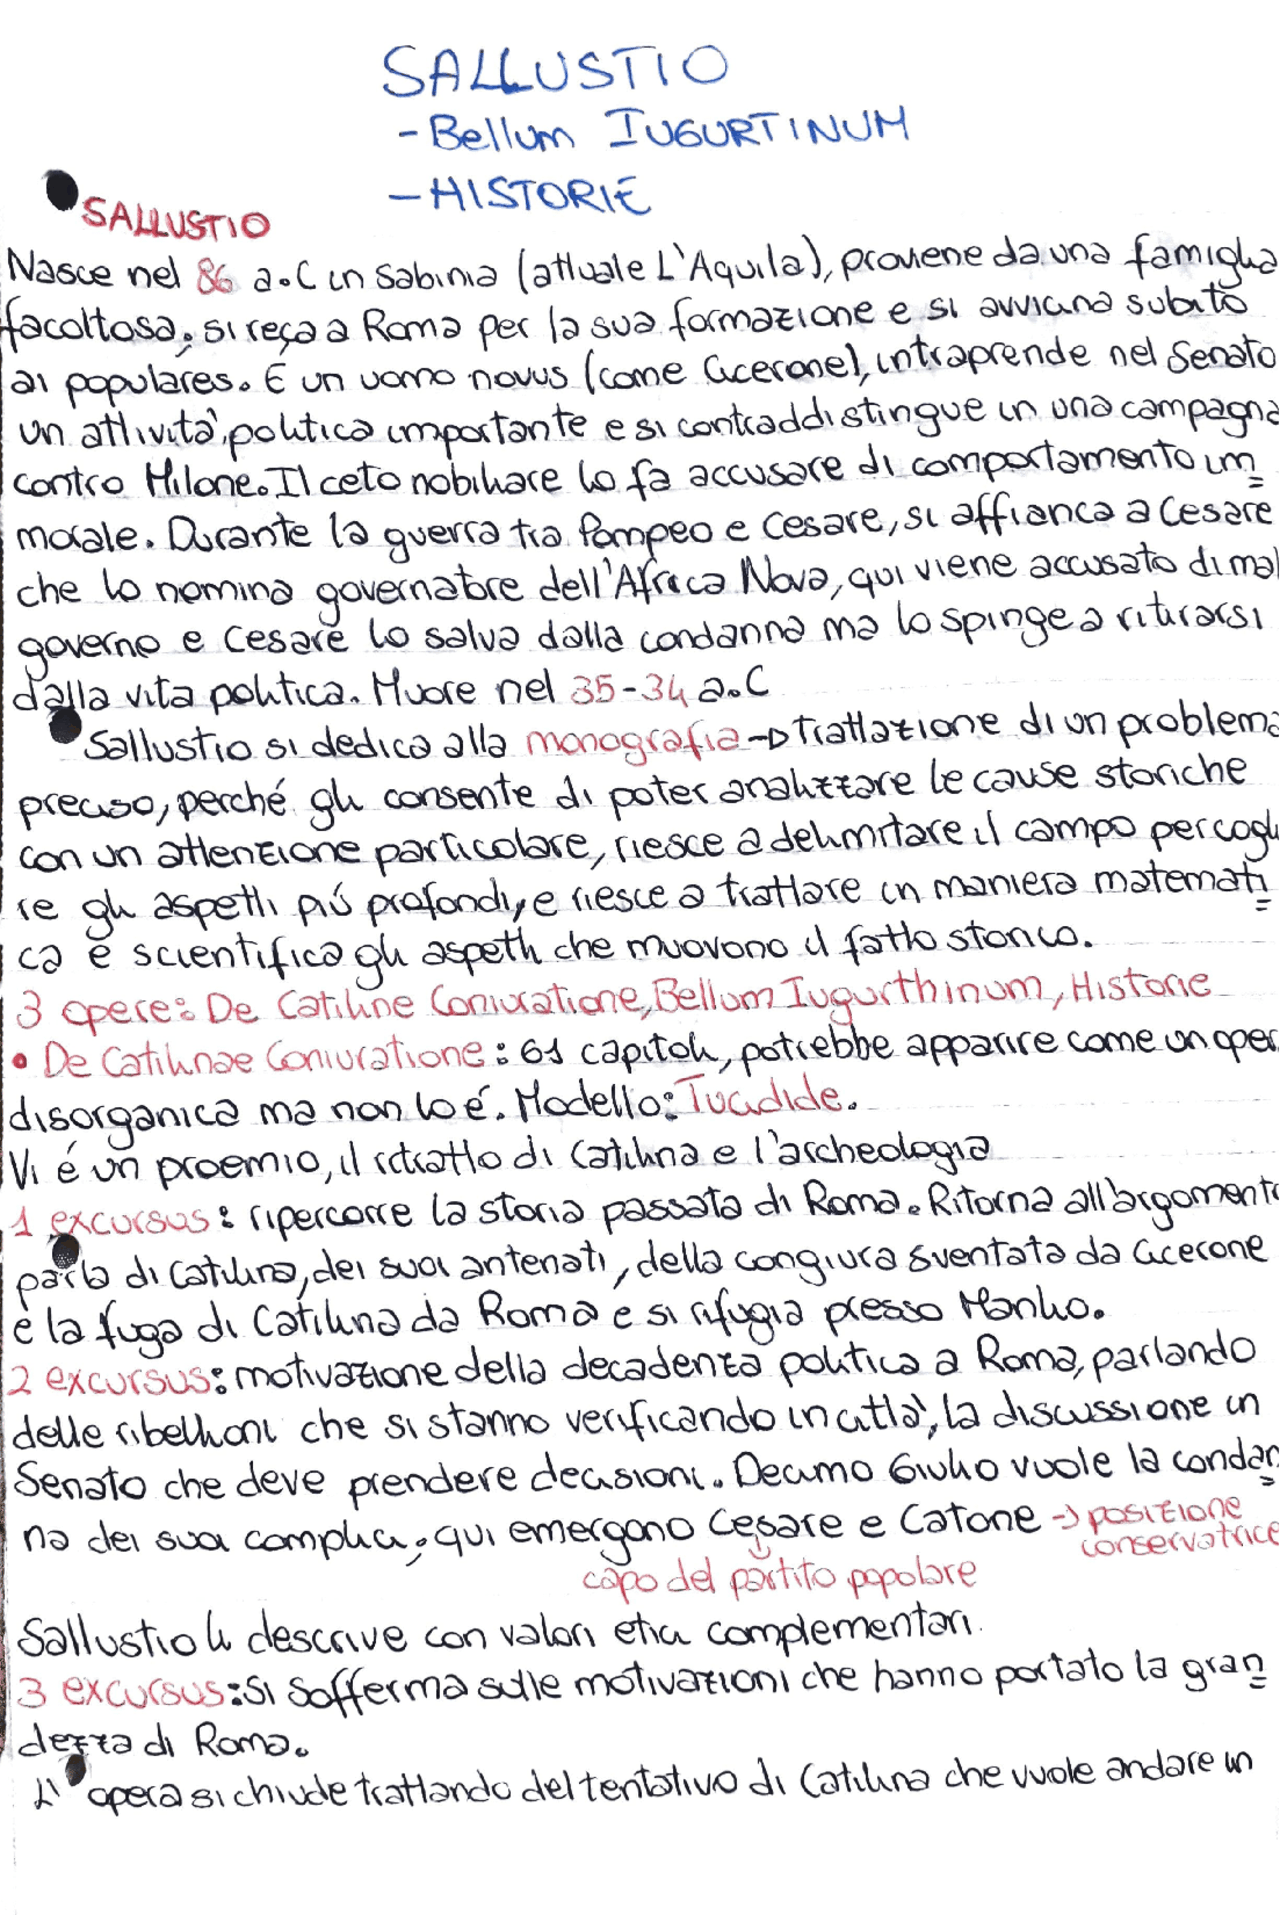 SALLUSTIO
- Bellum IUGURTINUM
- HISTORIE
SALLUSTIO
Nasce nel 86 a.C in Sabinia (attuale L'Aquila), proviene da una famiglia
facoltosa, si reca a Roma per la sua formazione e si avvicina subito
ai populares. É un uomo novus (come Cicerone), intraprende nel Senato
un attività politica importante e si contraddistingue in una campagna
contro Milone. Il ceto nobiliare lo fa accusare di comportamento im=
morale. Durante la guerra tra Pompeo e Cesare, si affianca a Cesare
che lo nomina governatore dell'Africa Nova, qui viene accusato di mal
governo e Cesare lo salva dalla condanna ma lo spinge a ritirarsi
dalla vita politica. Muore nel 35-34 a.C
Sallustio si dedica alla monografia → Trattazione di un problema
preciso, perché gli consente di poter analizzare le cause storiche
con un attenzione particolare, riesce a delimitare il campo per cogli
re gli aspetti più profondi, e riesce a trattare in maniera matemati=
ca e scientifica gli aspetti che muovono il fatto storico.
3 opere: De Catiline Coniuratione, Bellum Iugurthinum, Historie
• De Catilinae Coniuratione: 61 capitoli, potrebbe apparire come un oper
disorganica ma non lo é. Modello: Tucidide.
Vi é un proemio, il ritratto di Catilina e l'archeologia
1 excursus: ripercorre la storia passata di Roma. Ritorna all'argomento
parla di Catilina, dei suoi antenati, della congiura sventata da Cicerone
e la fuga di Catilina da Roma e si rifugia presso Manlio.
2 excursus: motivazione della decadenza politica a Roma, parlando
delle ribellioni che si stanno verificando in città, la discussione in
Senato che deve prendere decisioni. Decimo Giulio vuole la condan=
na dei suoi complici, qui emergono Cesare e Catone → posizione
conservatrice
capo del partito popolare
Sallustio li descrive con valori etici complementari.
3 excursus: si sofferma sulle motivazioni che hanno portato la gran=
dezza di Roma.
L' opera si chiude trattando del tentativo di Catilina che vuole andare in